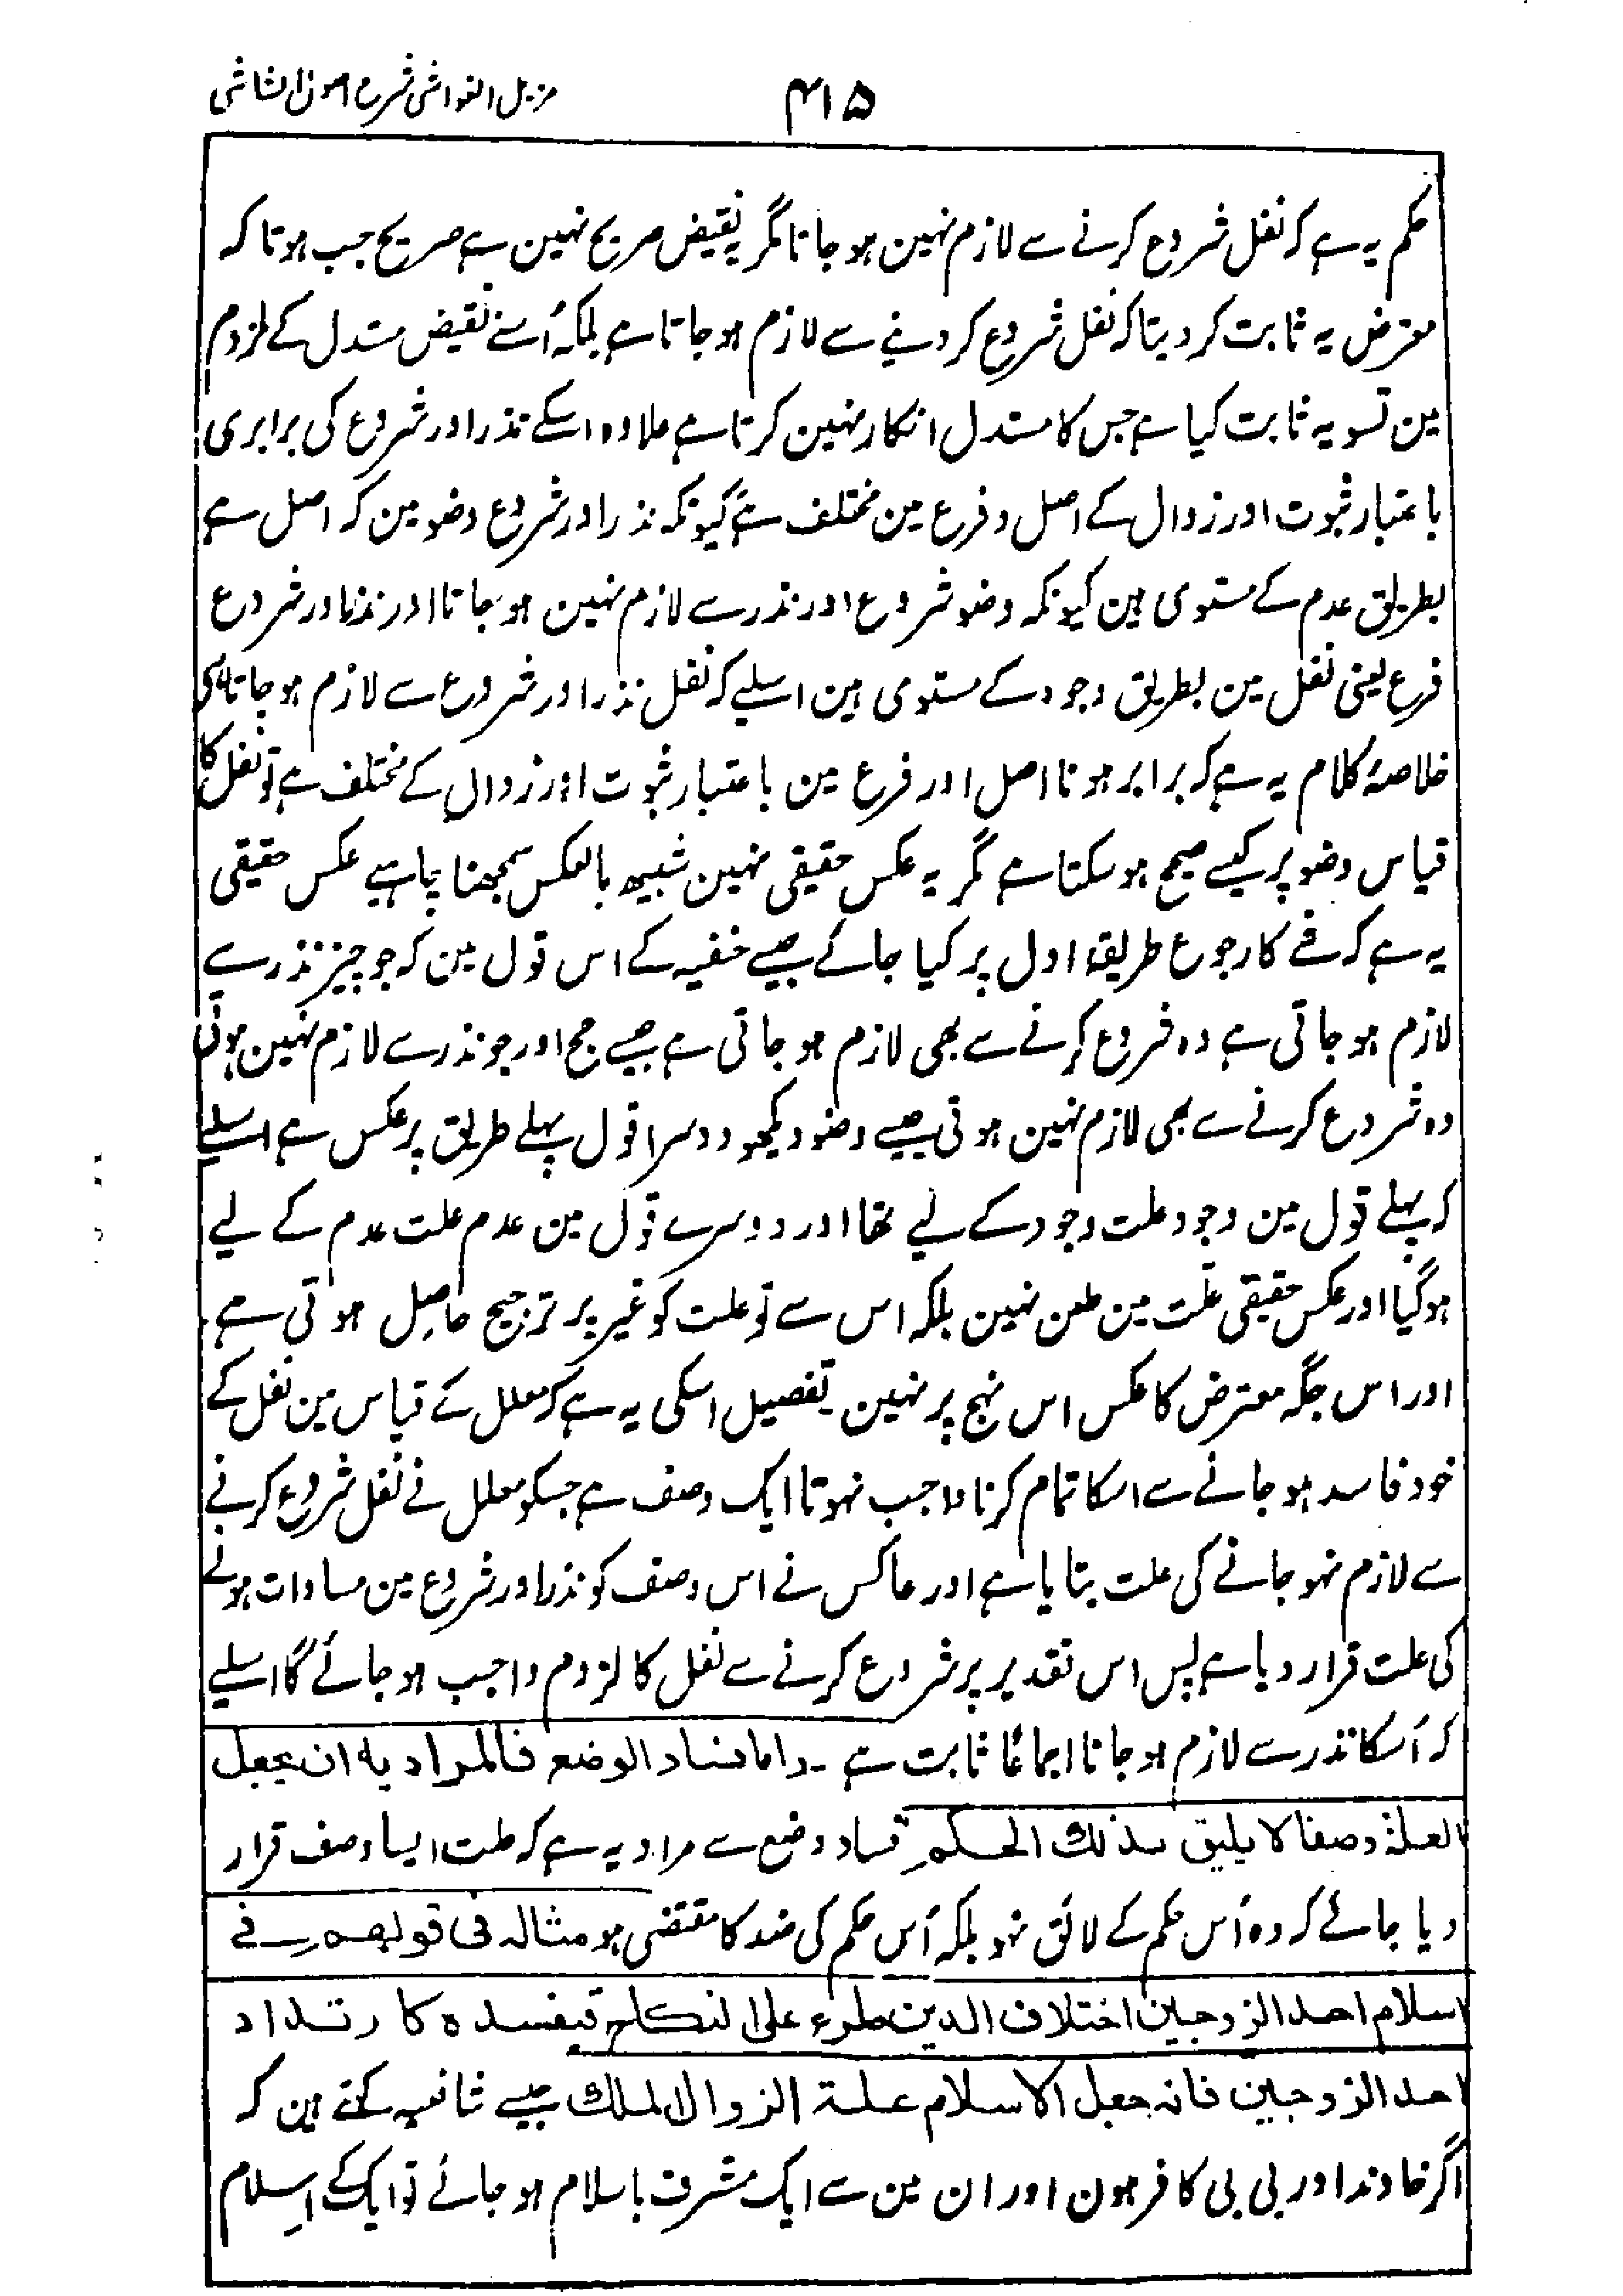 مزیل الغواشی شرح اصول الشاشی
۴۱۵
حکم یہ ہے کہ نفل شروع کرنے سے لازم نہین ہو جاتا مگر یہ نقیض صریح نہین ہے صریح جب ہوتا کہ
معترض یہ ثابت کر دیتا کہ نفل شروع کر دینے سے لازم ہو جاتا ہے بلکہ اُسنے نقیض مستدل کے لزوم
مین تسویہ ثابت کیا ہے جس کا مستدل انکار نہین کرتا ہے علاوہ اسکے نذر اور شروع کی برابری
باعتبار ثبوت اور زوال کے اصل و فرع مین مختلف ہے کیونکہ نذر اور شروع وضو مین کہ اصل ہے
بطریق عدم کے مستوی ہین کیونکہ وضو شروع اور نذر سے لازم نہین ہو جاتا اور نذر اور شروع
فرع یعنی نفل مین بطریق وجود کے مستوی ہین اسلیے کہ نفل نذر اور شروع سے لازم ہو جاتا ہے
خلاصۂ کلام یہ ہے کہ برابر ہونا اصل اور فرع مین باعتبار ثبوت اور زوال کے مختلف ہے تو نفل کا
قیاس وضو پر کیسے صحیح ہو سکتا ہے مگر یہ عکس حقیقی نہین شبیہ بالعکس سمجھنا چاہیے عکس حقیقی
یہ ہے کہ شے کا رجوع طریقۂ اول پر کیا جائے جیسے حنفیہ کے اس قول مین کہ جو چیز نذر سے
لازم ہو جاتی ہے وہ شروع کرنے سے بھی لازم ہو جاتی ہے جیسے حج اور جو نذر سے لازم نہین ہوتی
وہ شروع کرنے سے بھی لازم نہین ہوتی جیسے وضو دیکھو دوسرا قول پہلے طریق پر عکس ہے اسلیے
کہ پہلے قول مین وجود علت وجود کے لیے تھا اور دوسرے قول مین عدم علت عدم کے لیے
ہو گیا اور عکس حقیقی علت مین طعن نہین بلکہ اس سے تو علت کو غیر پر ترجیح حاصل ہوتی ہے
اور اس جگہ معترض کا عکس اس نہج پر نہین تفصیل اسکی یہ ہے کہ معلل کے قیاس مین نفل کے
خود فاسد ہو جانے سے اسکا تمام کرنا واجب نہوتا ایک وصف ہے جسکو معلل نے نفل شروع کرنے
سے لازم نہو جانے کی علت بتایا ہے اور عاکس نے اس وصف کو نذر اور شروع مین مساوات ہونے
کی علت قرار دیا ہے پس اس تقدیر پر شروع کرنے سے نفل کا لزوم واجب ہو جائے گا اسلیے
کہ اُسکا نذر سے لازم ہو جانا اجماعًا ثابت ہے ۔ واما فساد الوضع فالمراد به ان يجعل
العلة وصفا لا يليق بذلك الحكم فساد وضع سے مراد یہ ہے کہ علت ایسا وصف قرار
دیا جائے کہ وہ اُس حکم کے لائق نہو بلکہ اُس حکم کی ضد کا مقتضی ہو مثاله فی قولهم فے
اسلام احد الزوجین اختلاف الدين طرء على النكاح فيفسده كارتداد
احد الزوجين فانه جعل الاسلام علة الزوال الملك جیسے شافعیہ کہتے ہین کہ
اگر خاوند اور بی بی کافر ہون اور ان مین سے ایک مشرف باسلام ہو جائے تو ایک کے اسلام